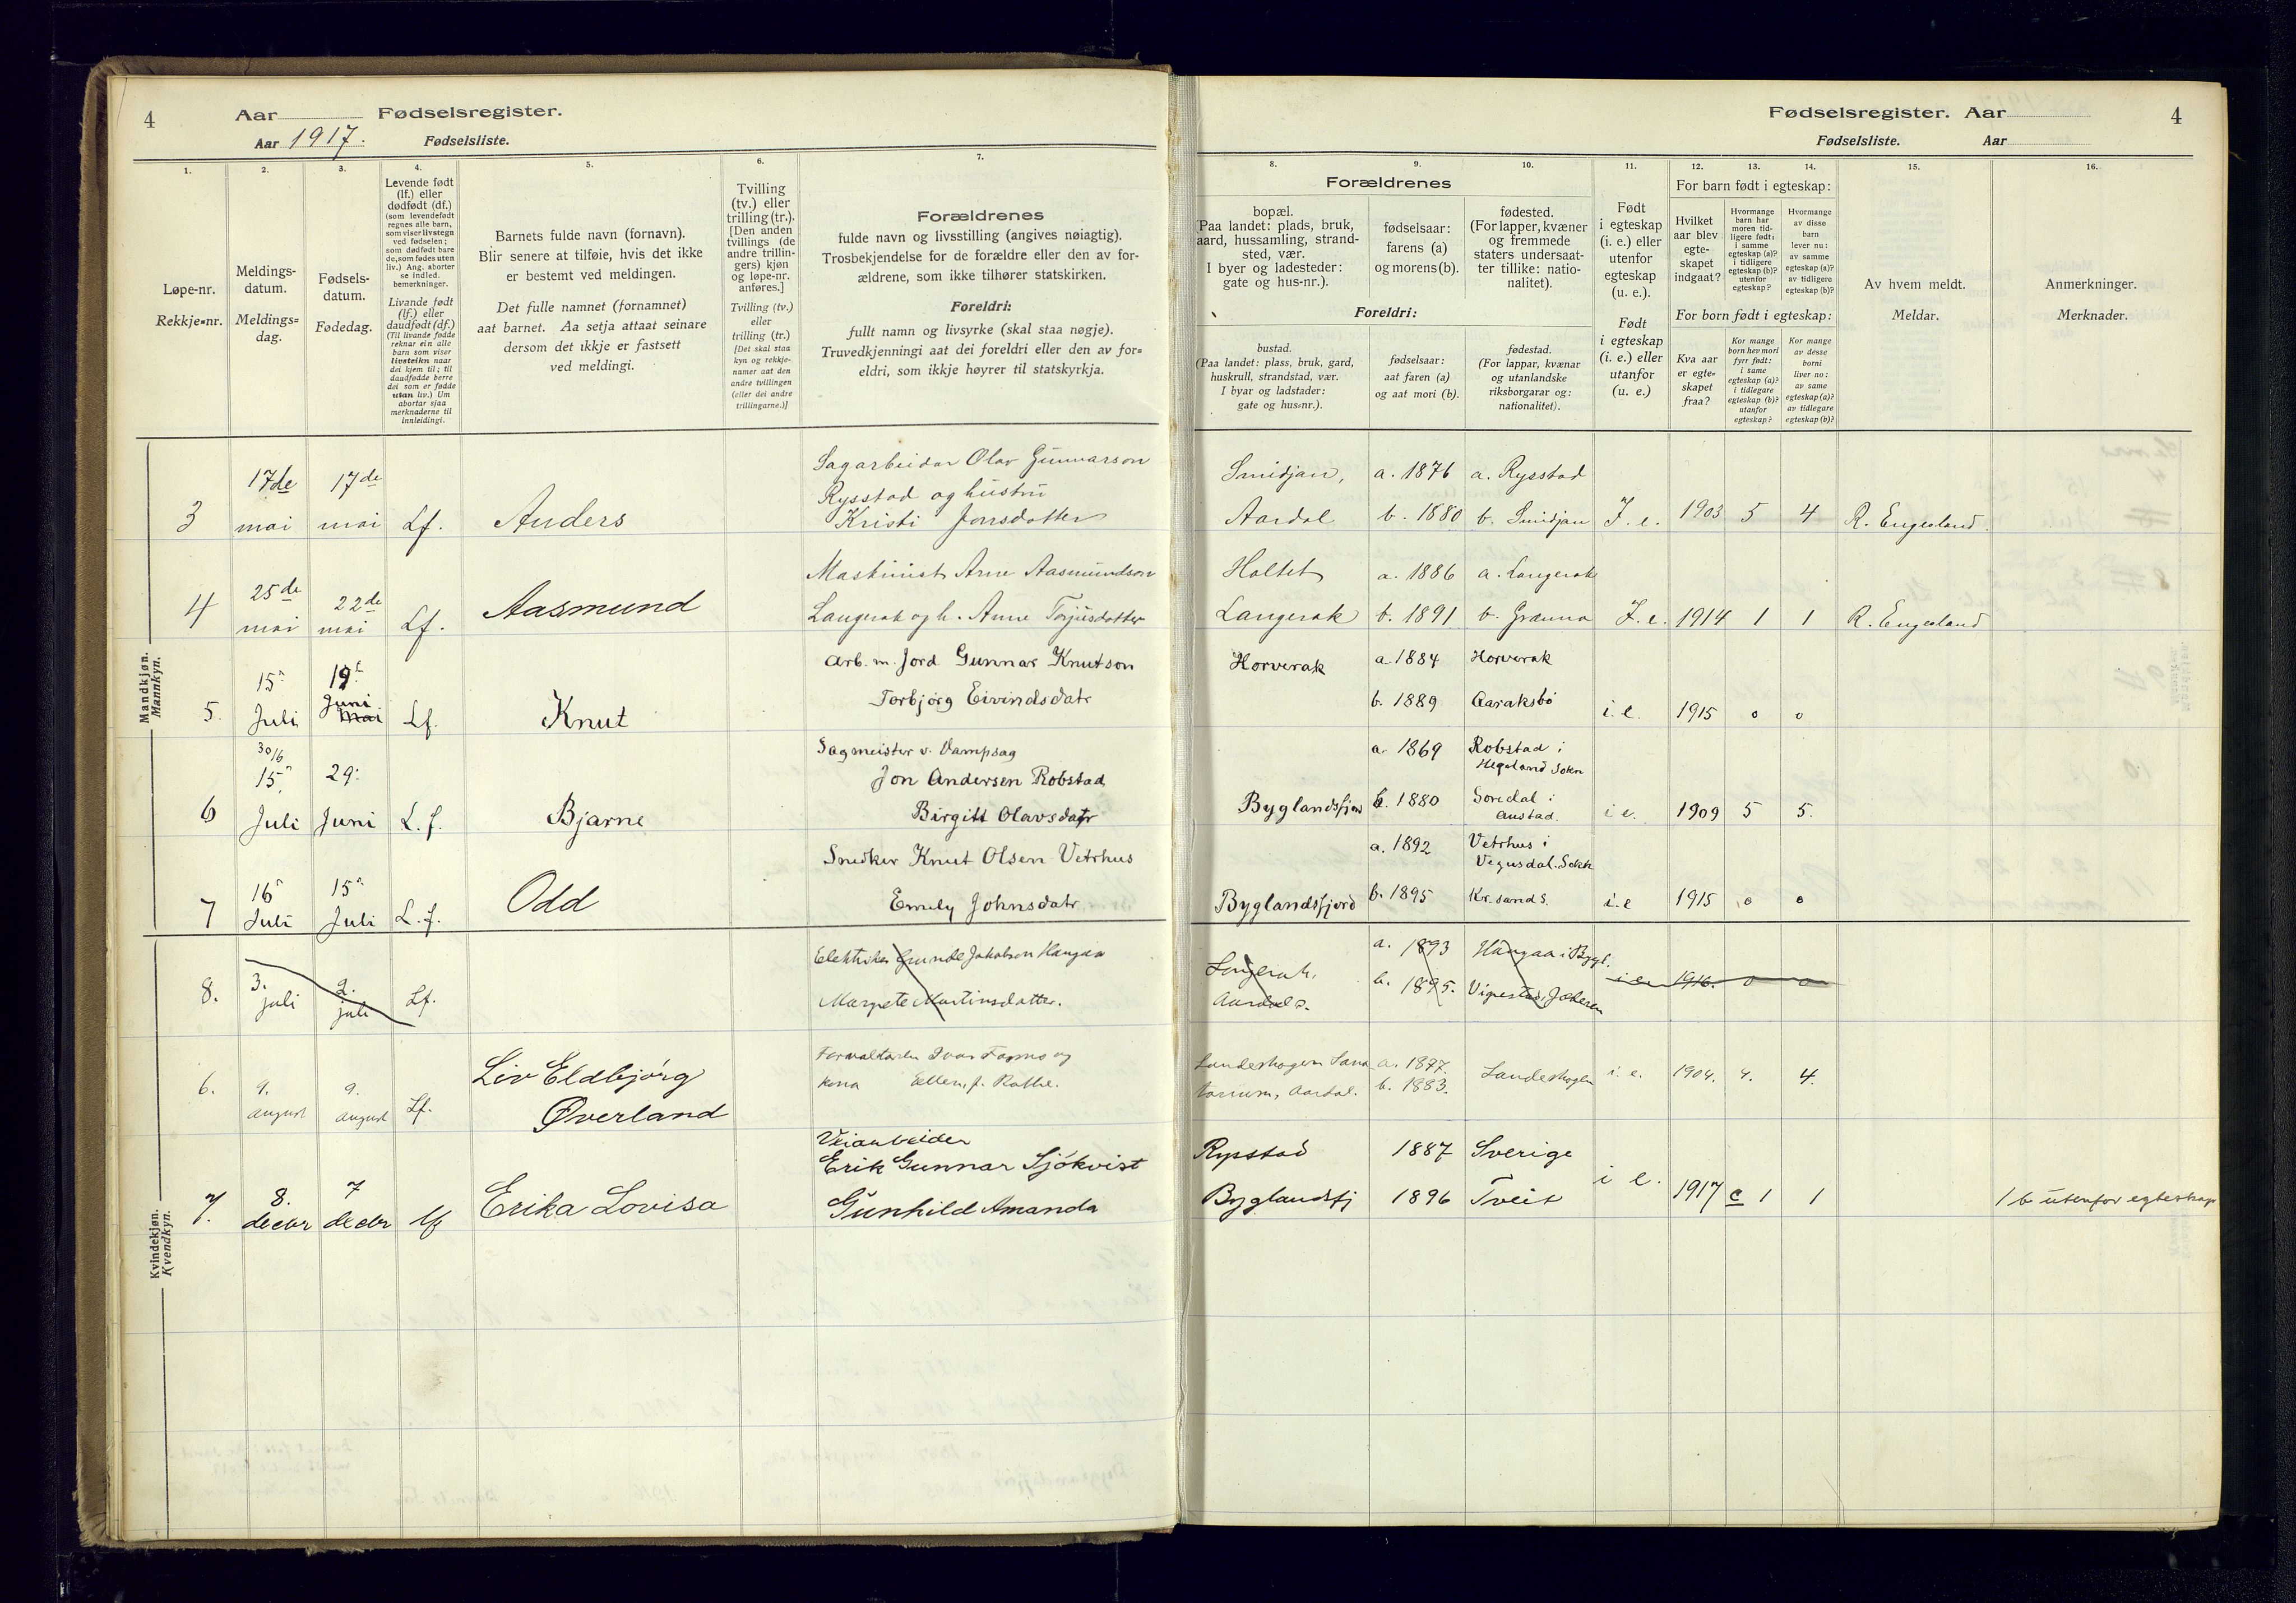 4
Aar Fødselsregister.
Aar 1917. Fødselsliste.
1.
2.
3.
4.
5.
6.
7.
Løpe-nr.
Rekkje=nr.
Meldings-
datum.
Meldings=
dag.
Fødsels-
datum.
Fødedag.
Levende født
(lf.) eller
dødfødt (df.)
(som levendefødt
regnes alle barn,
som viser livstegn
ved fødselen;
som dødfødt bare
de, som fødes uten
liv.) Ang. aborter
se indled.
bemerkninger.
Livande født
(lf.) eller
daudfødt (df.)
(Til livande fødde
reknar ein alle
barn som viser
livsteikn naar
dei kjem til; til
daudfødde berre
dei som er fødde
utan liv.) Um
abortar sjaa
merknaderne til
innleidingi.
Barnets fulde navn (fornavn).
Blir senere at tilføie, hvis det ikke
er bestemt ved meldingen.
Det fulle namnet (fornamnet)
aat barnet. Aa setja attaat seinare
dersom det ikkje er fastsett
ved meldingi.
Tvilling
(tv.) eller
trilling (tr.).
[Den anden
tvillings (de
andre trillin-
gers) kjøn
og løpe-nr.
anføres.]
Tvilling (tv.)
eller
trilling (tr.)
[Det skal staa
kyn og rekkje-
numer aat den
andre tvillingen
(eller dei andre
trillingarne.)]
Forældrenes
fulde navn og livsstilling (angives nøiagtig).
Trosbekjendelse for de forældre eller den av for-
ældrene, som ikke tilhører statskirken.
Foreldri:
fullt namn og livsyrke (skal staa nøgje).
Truvedkjenningi aat dei foreldri eller den av for=
eldri, som ikkje høyrer til statskyrkja.
Mandkjøn.
Mannkyn.
3 17de mai 17de mai Lf. Anders
Sagarbeidar Olav Gunnarson
Rysstad og hustru
Kristi Jonsdotter
4 25de mai 22de mai Lf. Aasmund
Maskinist Arne Aasmundson
Langerak og h. Anne Torjusdotter
5. 15n Juli 19. Juni Mai Lf. Knut
Arb. m. Jord Gunnar Knutson
Torbjørg Eivindsdatr
6 30/6 15n Juli 29. Juni L. f. Bjarne
Sagmeister v. Dampsag
Jon Andersen Robstad
Birgitt Olavsdatr
7 16n Juli 15n Juli L. f. Odd
Snedker Knut Olsen Vetrhus
Emely Johnsdatr
Kvindekjøn.
Kvendkyn.
8. 3. juli 2. juli Lf.
Elektriker Grunde Jakobsen Haugaa
Margete Martinsdatter.
6. 9. august 9. august Lf. Liv Eldbjørg
Øverland
Forvalteren Ivar og
kona Ellen, f. Rothe.
7. 8. decbr 7 decbr lf Erika Lovisa
Veiarbeider
Erik Gunnar Sjökvist
Gunhild Amanda
Fødselsregister. Aar
4
Fødselsliste. Aar
8.
9.
10.
11.
12.
13.
14.
15.
16.
Forældrenes
bopæl.
(Paa landet: plads, bruk,
gaard, hussamling, strand-
sted, vær.
I byer og ladesteder:
gate og hus-nr.).
fødselsaar:
farens (a)
og morens (b).
fødested.
(For lapper, kvæner
og fremmede
staters undersaat-
ter tillike: natio-
nalitet).
Foreldri:
bustad.
(Paa landet: plass, bruk, gard,
huskrull, strandstad, vær.
I byar og ladstader:
gate og hus=nr.).
fødselsaar:
aat faren (a)
og aat mori (b).
fødestad.
(For lappar, kvænar
og utanlandske
riksborgarar og:
nationalitet).
Født
i egteskap
(i. e.) eller
utenfor
egteskap
(u. e.).
Født
i egteskap
(i. e.) eller
utanfor
(u. e.)
For barn født i egteskap:
Hvilket
aar blev
egte-
skapet
indgaat?
Hvormange
barn har
moren tid-
ligere født:
i samme
egteskap (a)?
i tidligere
egteskap (b)?
utenfor
egteskap?
Hvormange
av disse
barn
lever nu:
av samme
egteskap (a)?
av tidligere
egteskap (b)?
For born født i egteskap:
Kva aar
er egte=
skapet
fraa?
Kor mange
born hev mori
fyrr født:
i same
egteskap (a)?
i tidlegare
egteskap (b)?
utanfor
egteskap?
Kor mange
av desse
borni
liver no:
av same
egteskap (a)?
av tidlegare
egteskap (b)?
Av hvem meldt.
Meldar.
Anmerkninger.
Merknader.
Smidjan, a. 1876 a. Rysstad
Aardal b. 1880 b. Smidjan I. e. 1903 5 4 R. Engesland
Holtet a. 1886 a. Langerak
Langerak b. 1891 b. Granna I. e. 1914 1 1 R. Engesland
Horverak a. 1884 Horverak
b. 1889 Aaraksbø i. e. 1915 0 0
a. 1869 Robstad i
Hegeland Sokn
Byglandsfjord b. 1880 Soredal i
Austad. i e. 1909 5 5.
a. 1892 Vetrhus i
Vegusdal. Sokn
Byglandsfjord b. 1895 Kr. sand S. i. e 1915 0 0
Langerak, a. 1893 Haugaa i Bygl.
Aardal s. b. 1895. Vigestad, Jæderen i e. 1916. 0 0
Landeskogen Sana a. 1877.
torium, Aardal. b. 1883. Landeskogen i. e. 1904. 4. 4.
Rysstad 1887 Sverige
Byglandsfj 1896 Tveit i e. 1917 c 1 1 1 b utenfor egteskap